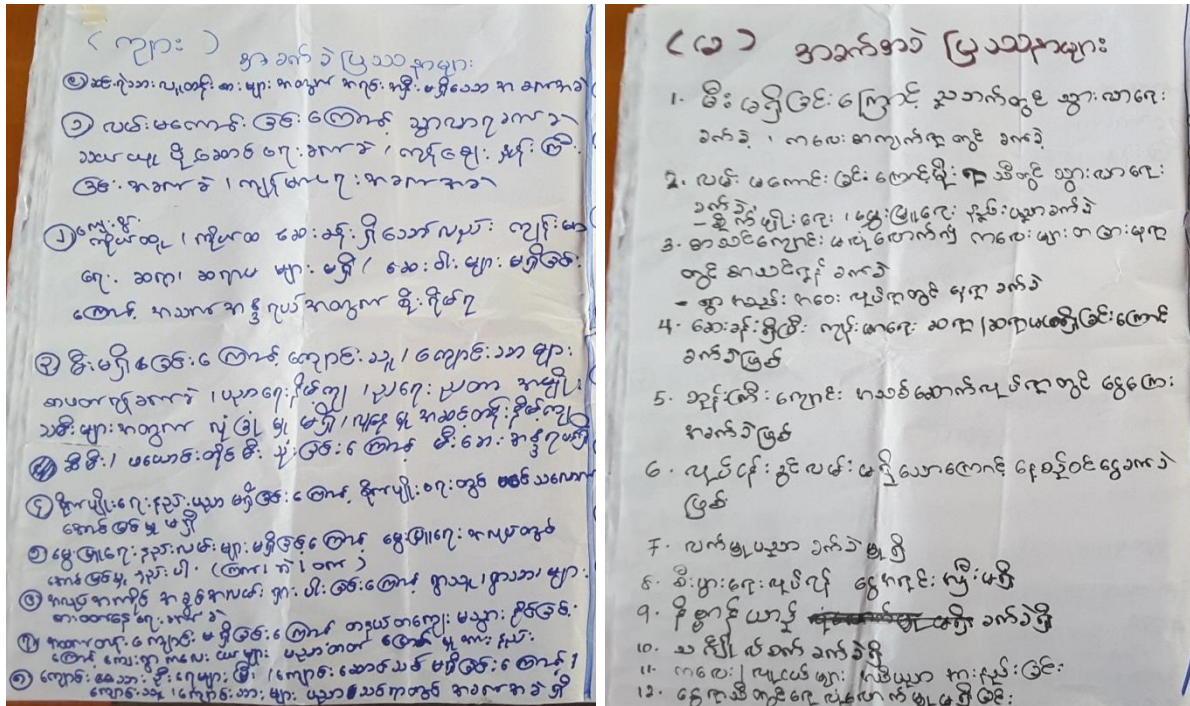 (ကျား) အခက်ခဲပြဿနာများ
ဆင်းရဲသားလူတန်းစားများအတွက် အရင်းအနှီးမရှိသော အခက်အခဲ
၁ လမ်းမကောင်းခြင်းကြောင့် သွားလာရခက်ခဲ
သယ်ယူပို့ဆောင်ရေးခက်ခဲ၊ ကုန်ဈေးနှုန်းကြီး
ခြင်းအခက်ခဲ၊ ကျန်းမာရေးအခက်အခဲ
၂ ကျေးရွာ
ကိုယ်ထူ၊ ကိုယ်ထ ဆေးခန်းရှိသော်လည်း ကျန်းမာ
ရေး ဆရာ၊ ဆရာမများမရှိ၊ ဆေးဝါးများမရှိခြင်း
ကြောင့် အသက်အန္တရာယ်အတွက် စိုးရိမ်ရ
၃ မီးမရှိခြင်းကြောင့် ကျောင်းသူ၊ ကျောင်းသားများ
စာဖတ်ရန်ခက်ခဲ၊ ပညာရေးနိမ့်ကျ၊ ညရေးညတာ အမျိုး
သမီးများအတွက် လုံခြုံမှုမရှိ၊ လူနေမှုအဆင့်အတန်းနိမ့်ကျ
၄ ဆီမီး၊ ဖယောင်းတိုင်မီးသုံးခြင်းကြောင့် မီးဘေးအန္တရာယ်ရှိ
၅ စိုက်ပျိုးရေးနည်းပညာမရှိခြင်းကြောင့် စိုက်ပျိုးရေးတွင်
အောင်မြင်မှုမရှိ
၆ မွေးမြူရေးနည်းလမ်းများမရှိခြင်းကြောင့် မွေးမြူရေးအလုပ်တွင်
အောင်မြင်မှုနည်းပါး (ကြက်၊ ဘဲ၊ ဝက်)
၇ အလုပ်အကိုင်အခွင့်အလမ်းရှားပါးခြင်းကြောင့် ရွာသူ၊ ရွာသားများ
စားဝတ်နေရေးခက်ခဲ
၈ အထက်တန်းကျောင်းမရှိခြင်းကြောင့် တနယ်တကျေးမသွားနိုင်ခြင်း
ကြောင့် ကျေးရွာကလေးငယ်များ ပညာတတ်မြောက်မှုအားနည်း
၉ ကျောင်းဆောင်သစ်မရှိခြင်းကြောင့်
ကျောင်းသူ၊ ကျောင်းသားများ ပညာသင်ရာတွင် အခက်အခဲရှိ
(မ) အခက်အခဲ ပြဿနာများ
1. မီးမရှိခြင်းကြောင့် ညဘက်တွင် သွားလာရေး
ခက်ခဲ၊ ကလေးစာကျက်ရာတွင် ခက်ခဲ
2. လမ်းမကောင်းခြင်းကြောင့် မိုးရာသီတွင် သွားလာရေး
ခက်ခဲ
- စိုက်ပျိုးရေး၊ မွေးမြူရေး နည်းပညာခက်ခဲ
3. စာသင်ကျောင်းမလုံလောက်၍ ကလေးများတခြားရွာ
တွင် စာသင်ရန် ခက်ခဲ
4. ဆေးခန်းရှိပြီး ကျန်းမာရေး ဆရာ၊ ဆရာမမရှိခြင်းကြောင့်
ခက်ခဲဖြစ်
5. ဘုန်းကြီးကျောင်း အသစ်ဆောက်လုပ်ရာတွင် ငွေကြေး
အခက်ခဲဖြစ်
6. လုပ်ငန်းခွင်လမ်းမရှိသောကြောင့် နေ့စဉ်ဝင်ငွေခက်ခဲ
ဖြစ်
7. လက်မှုပညာ ခက်ခဲမှုရှိ
8. စီးပွားရေးလုပ်ရန် ငွေအရင်းအနှီးမရှိ
9. နိဗ္ဗာန်ယာဉ် ခက်ခဲရှိ
10. သင်္ဂြိုဟ်စက် ခက်ခဲရှိ
11. ကလေး၊ လူငယ်များ ပညာအားနည်းခြင်း
12. နွေရာသီတွင်ရေလုံလောက်မှုမရှိခြင်း